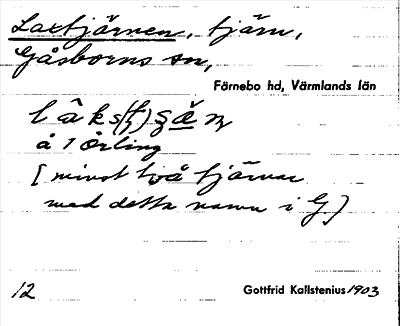 Laxtjärnen, tjärn,
Gåsborns sn,
Färnebo hd, Värmlands län
å 1 Örling
[minst två tjärnar
med detta namn i G]
12
Gottfrid Kallstenius 1903